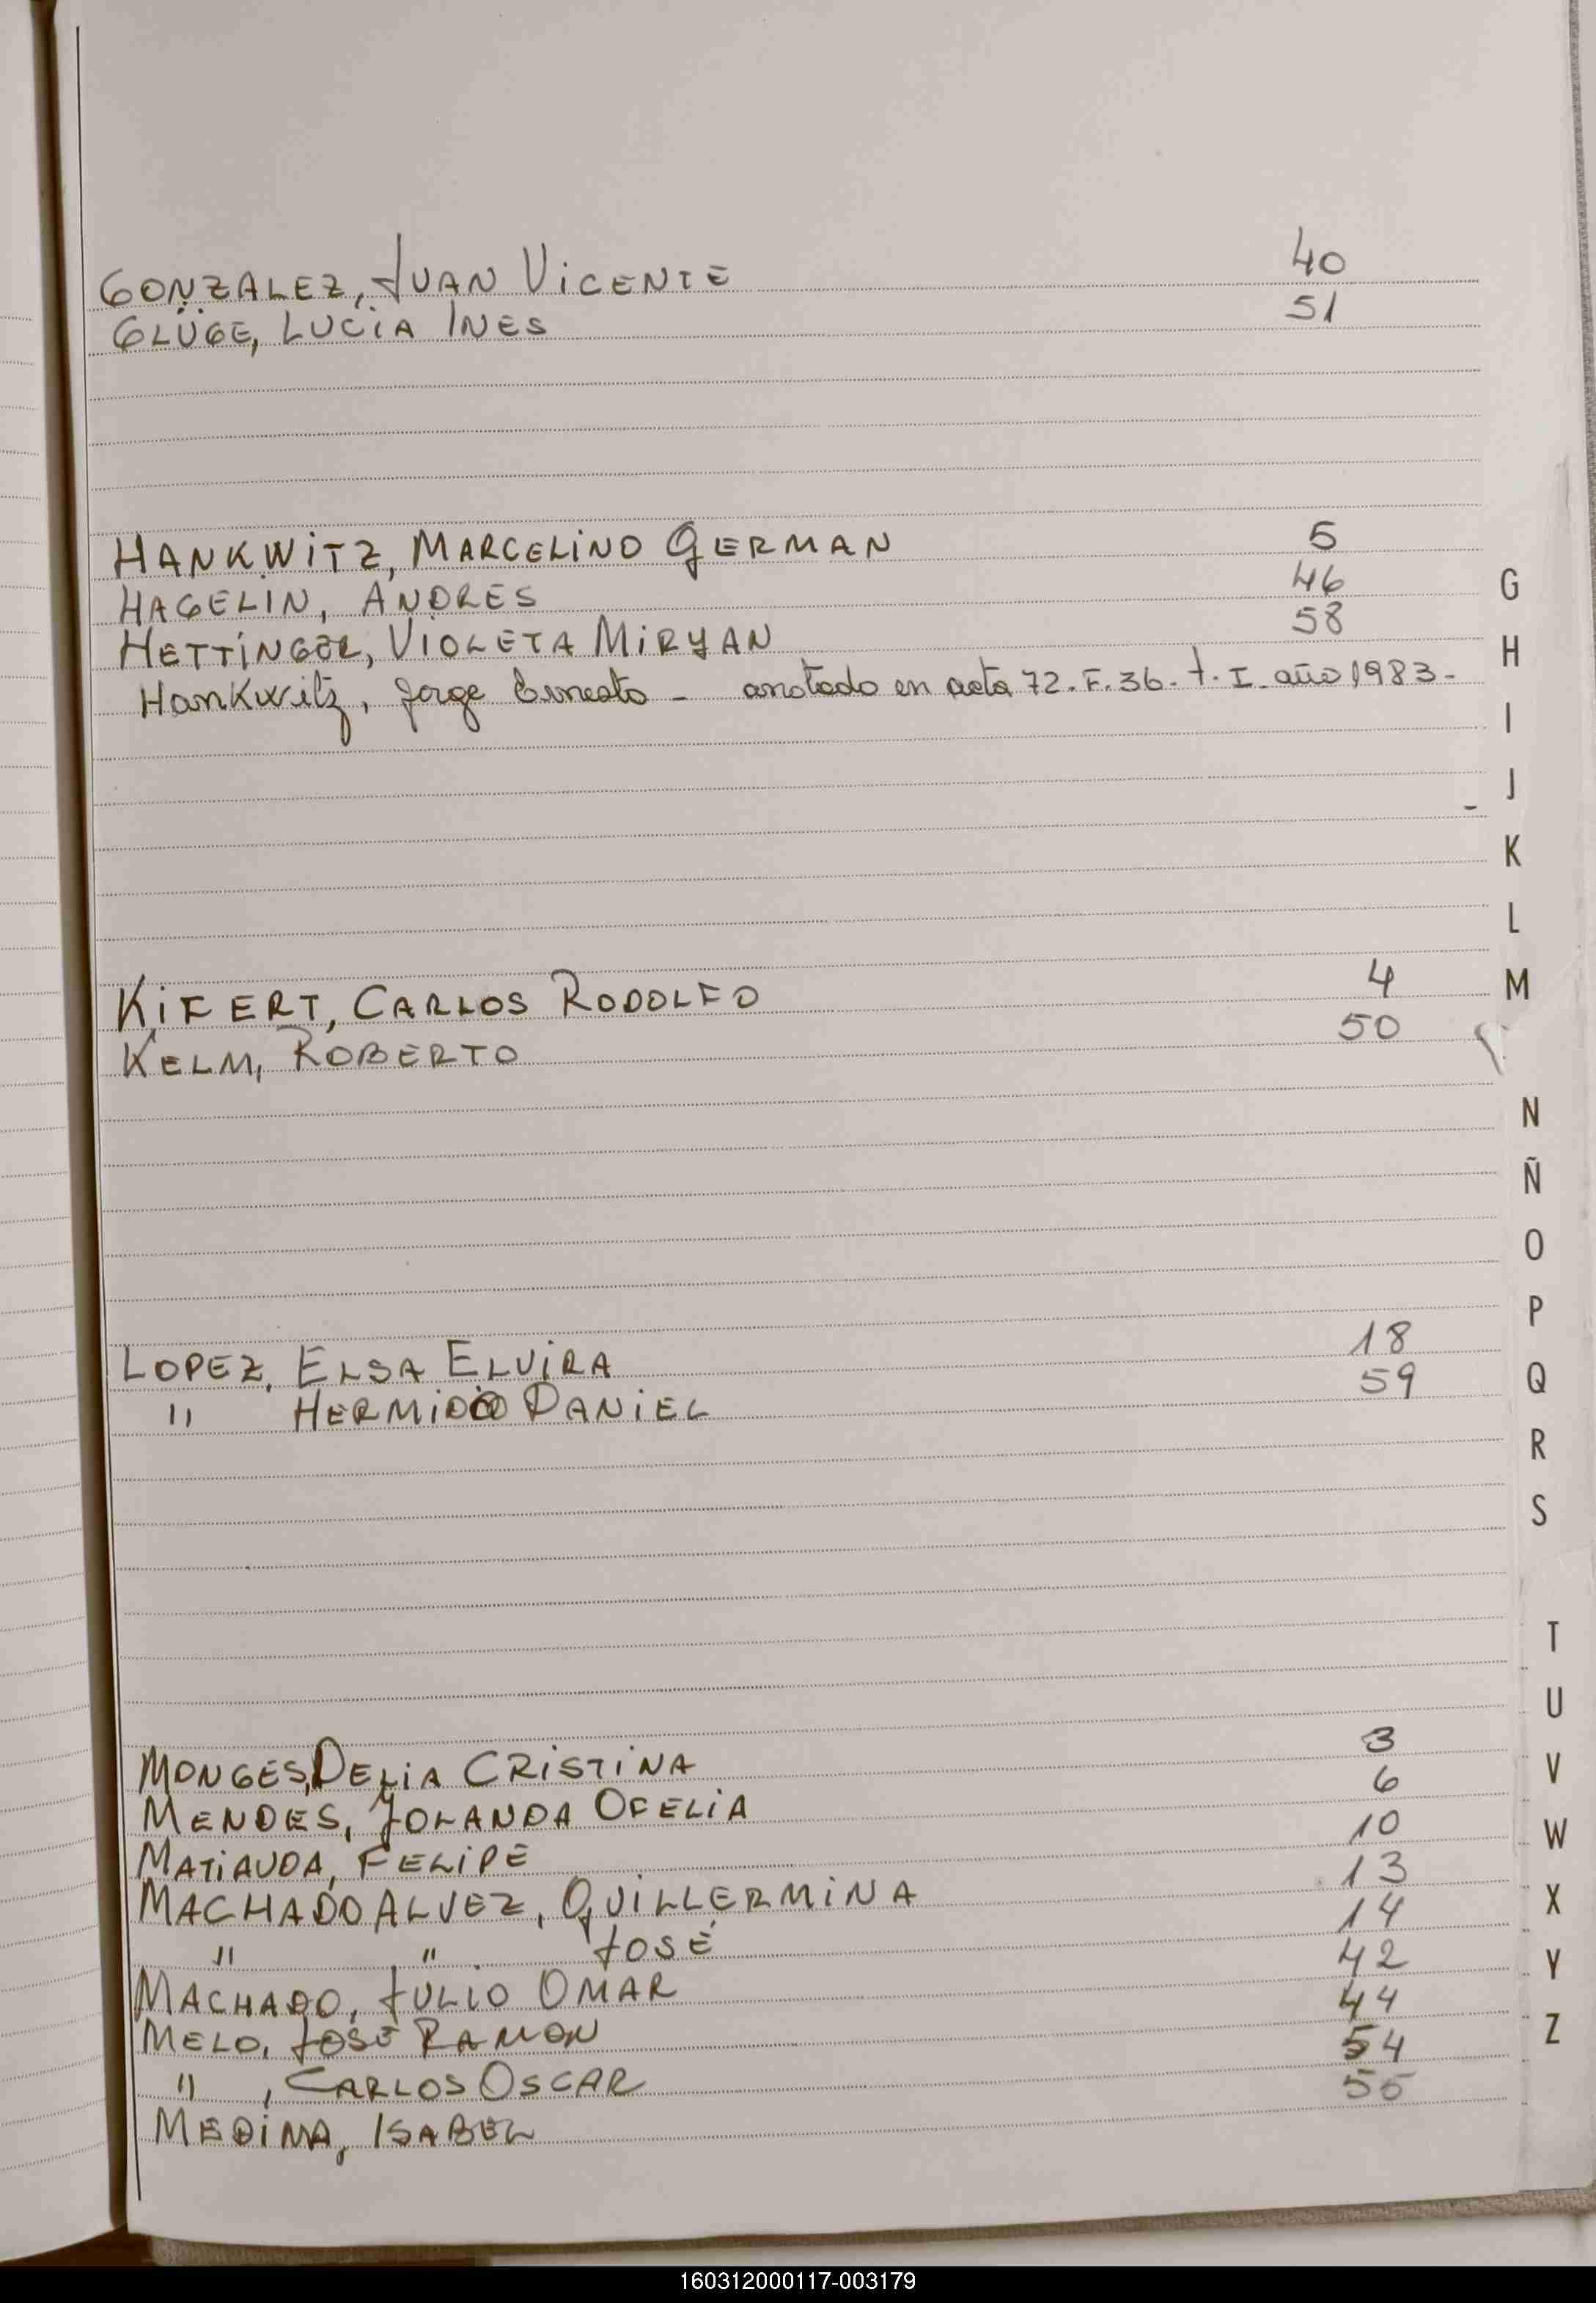 GONZALEZ, JUAN VICENTE 40
GLÜGE, LUCÍA INES 51
HANKWITZ, MARCELINO GERMAN 5
HAGELIN, ANDRES 46
HETTINGER, VIOLETA MIRYAN 58
Hankwitz, Jorge Ernesto - anotado en acta 72. F. 36. t. I. año 1983.-
KIFERT, CARLOS RODOLFO 4
KELM, ROBERTO 50
LOPEZ, ELSA ELVIRA 18
" HERMIDO DANIEL 59
MONGES, DELIA CRISTINA 3
MENDES, YOLANDA OFELIA 6
MATIAUDA, FELIPE 10
MACHADO ALVEZ, GUILLERMINA 13
" " JOSÉ 14
MACHADO, JULIO OMAR 42
MELO, JOSÉ RAMON 44
" , CARLOS OSCAR 54
MEDINA, ISABEL 55
G
H
I
J
K
L
M
N
Ñ
O
P
Q
R
S
T
U
V
W
X
Y
Z
160312000117-003179